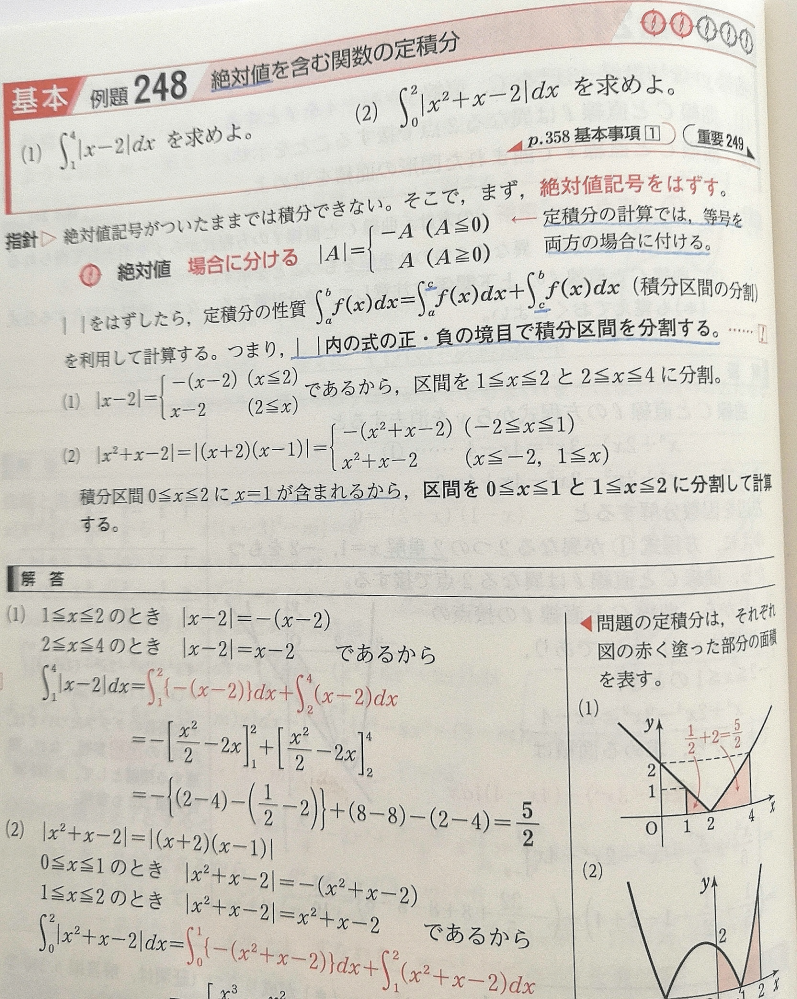 基本 例題 248 絶対値を含む関数の定積分
(1) ∫₁⁴|x−2|dx を求めよ。 (2) ∫₀²|x²+x−2|dx を求めよ。
p.358 基本事項 1 重要 249
指針▷ 絶対値記号がついたままでは積分できない。そこで，まず，絶対値記号をはずす。
絶対値 場合に分ける |A|={−A (A≦0) ← 定積分の計算では，等号を
A (A≧0) 両方の場合に付ける。
| |をはずしたら，定積分の性質 ∫ₐᵇf(x)dx=∫ₐᶜf(x)dx+∫꜀ᵇf(x)dx (積分区間の分割)
を利用して計算する。つまり，| |内の式の正・負の境目で積分区間を分割する。…… !
(1) |x−2|={−(x−2) (x≦2) であるから，区間を 1≦x≦2 と 2≦x≦4 に分割。
x−2 (2≦x)
(2) |x²+x−2|=|(x+2)(x−1)|={−(x²+x−2) (−2≦x≦1)
x²+x−2 (x≦−2, 1≦x)
積分区間 0≦x≦2 に x=1 が含まれるから，区間を 0≦x≦1 と 1≦x≦2 に分割して計算
する。
解 答
(1) 1≦x≦2 のとき |x−2|=−(x−2)
2≦x≦4 のとき |x−2|=x−2 であるから
∫₁⁴|x−2|dx=∫₁²{−(x−2)}dx+∫₂⁴(x−2)dx
=−[x²/2−2x]₁²+[x²/2−2x]₂⁴
=−{(2−4)−(1/2−2)}+(8−8)−(2−4)=5/2
(2) |x²+x−2|=|(x+2)(x−1)|
0≦x≦1 のとき |x²+x−2|=−(x²+x−2)
1≦x≦2 のとき |x²+x−2|=x²+x−2 であるから
∫₀²|x²+x−2|dx=∫₀¹{−(x²+x−2)}dx+∫₁²(x²+x−2)dx
◀問題の定積分は，それぞれ
図の赤く塗った部分の面積
を表す。
(1)
y
1/2+2=5/2
2
1
O 1 2 4 x
(2)
y
2
1 2 x